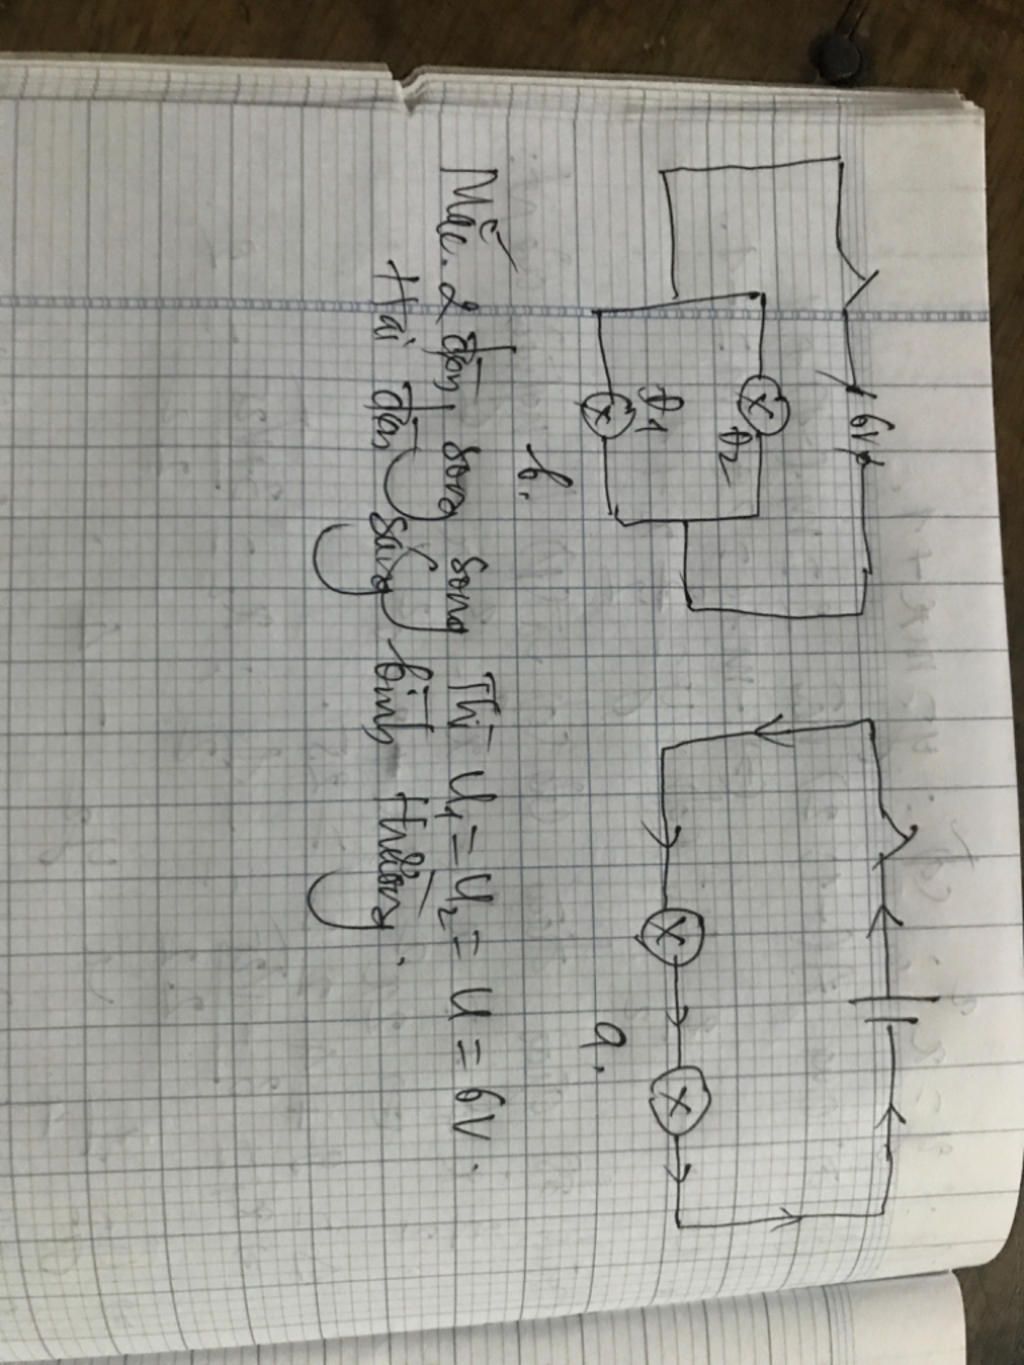 6V
Đ2
Đ1
b.
a.
Mắc 2 đèn song song Thì U1 = U2 = U = 6V.
Hai đèn sáng bình Thường.